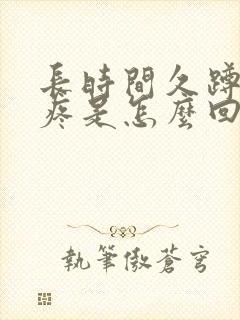 長時間久蹲
疼是怎麼回
執筆傲蒼穹